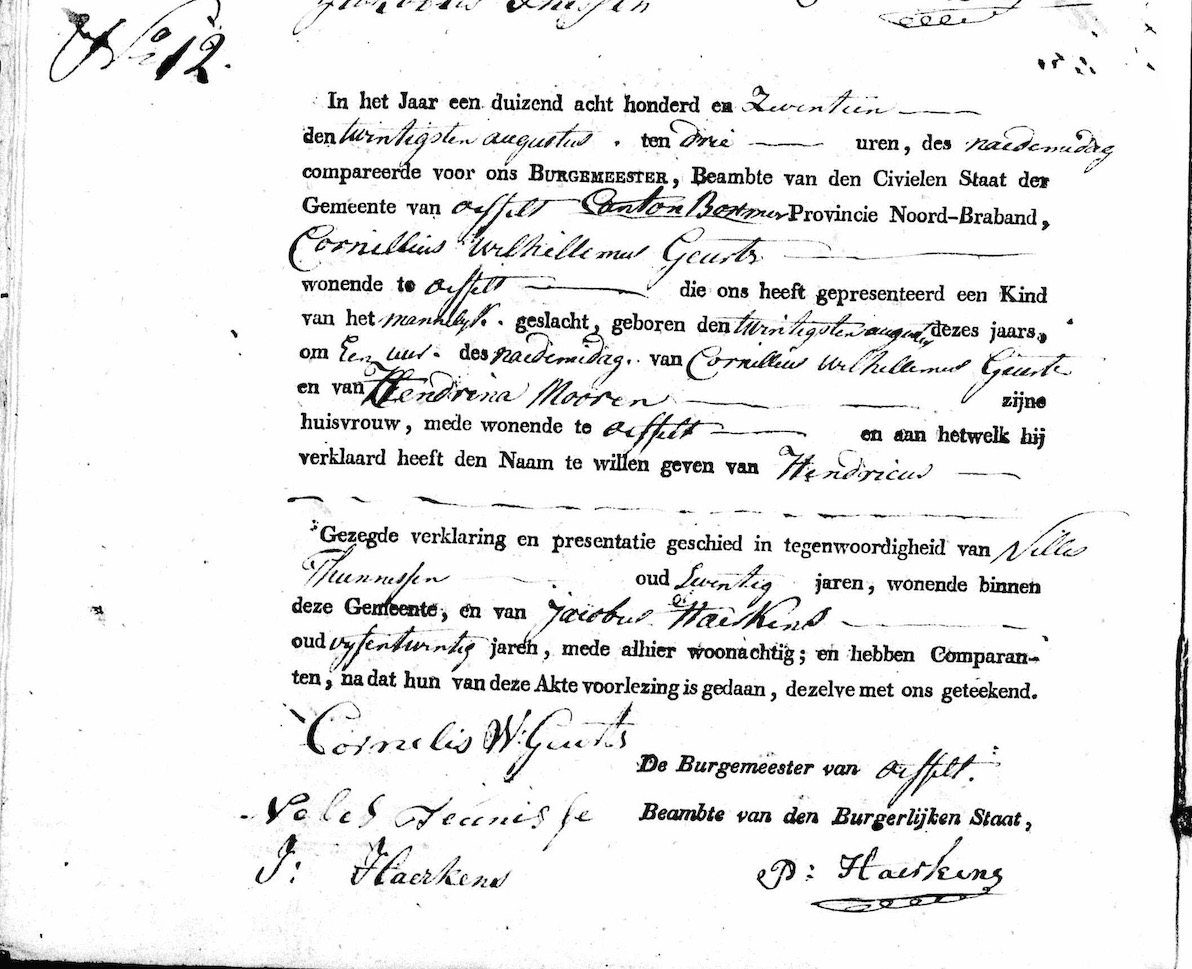 Jacobus Thissen
No 12.
In het Jaar een duizend acht honderd en Zeventien
den twintigsten augustus. ten Drie uren, des naedemidag
compareerde voor ons BURGEMEESTER, Beambte van den Civielen Staat der
Gemeente van Oeffelt Canton Boxmer Provincie Noord-Braband,
Cornillius Wilhillemus Geurts
wonende te Oeffelt die ons heeft gepresenteerd een Kind
van het mannelyk. geslacht, geboren den twintigsten augustus dezes jaars,
om Een uur. des naedemidag. van Cornillius Wilhellemus Geurts
en van Hendrina Mooren zijne
huisvrouw, mede wonende te Oeffelt en aan hetwelk hij
verklaard heeft den Naam te willen geven van Hendricus
Gezegde verklaring en presentatie geschied in tegenwoordigheid van Nilles
Thunnissen oud Zeventig jaren, wonende binnen
deze Gemeente, en van Jacobus Haerkens
oud vyfentwintig jaren, mede alhier woonachtig; en hebben Comparan-
ten, na dat hun van deze Akte voorlezing is gedaan, dezelve met ons geteekend.
Cornelis W: Geurts
De Burgemeester van Oeffelt.
Neles Teunisse
Beambte van den Burgerlijken Staat,
J: Haerkens
P: Haerkens